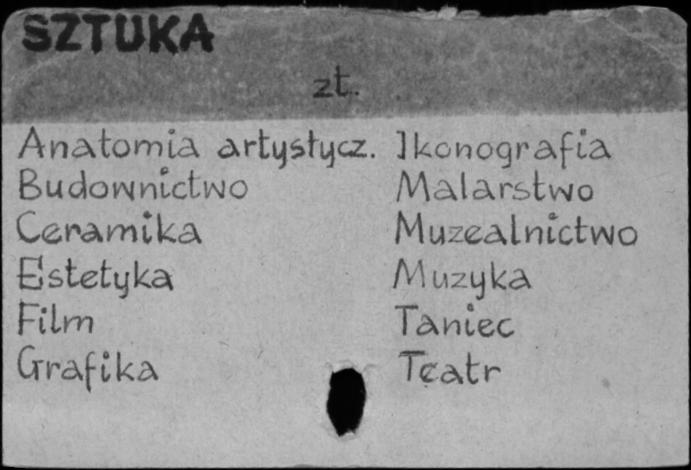 SZTUKA
zt.
Anatomia artystycz.
Budownictwo
Ceramika
Estetyka
Film
Grafika
Ikonografia
Malarstwo
Muzealnictwo
Muzyka
Taniec
Teatr